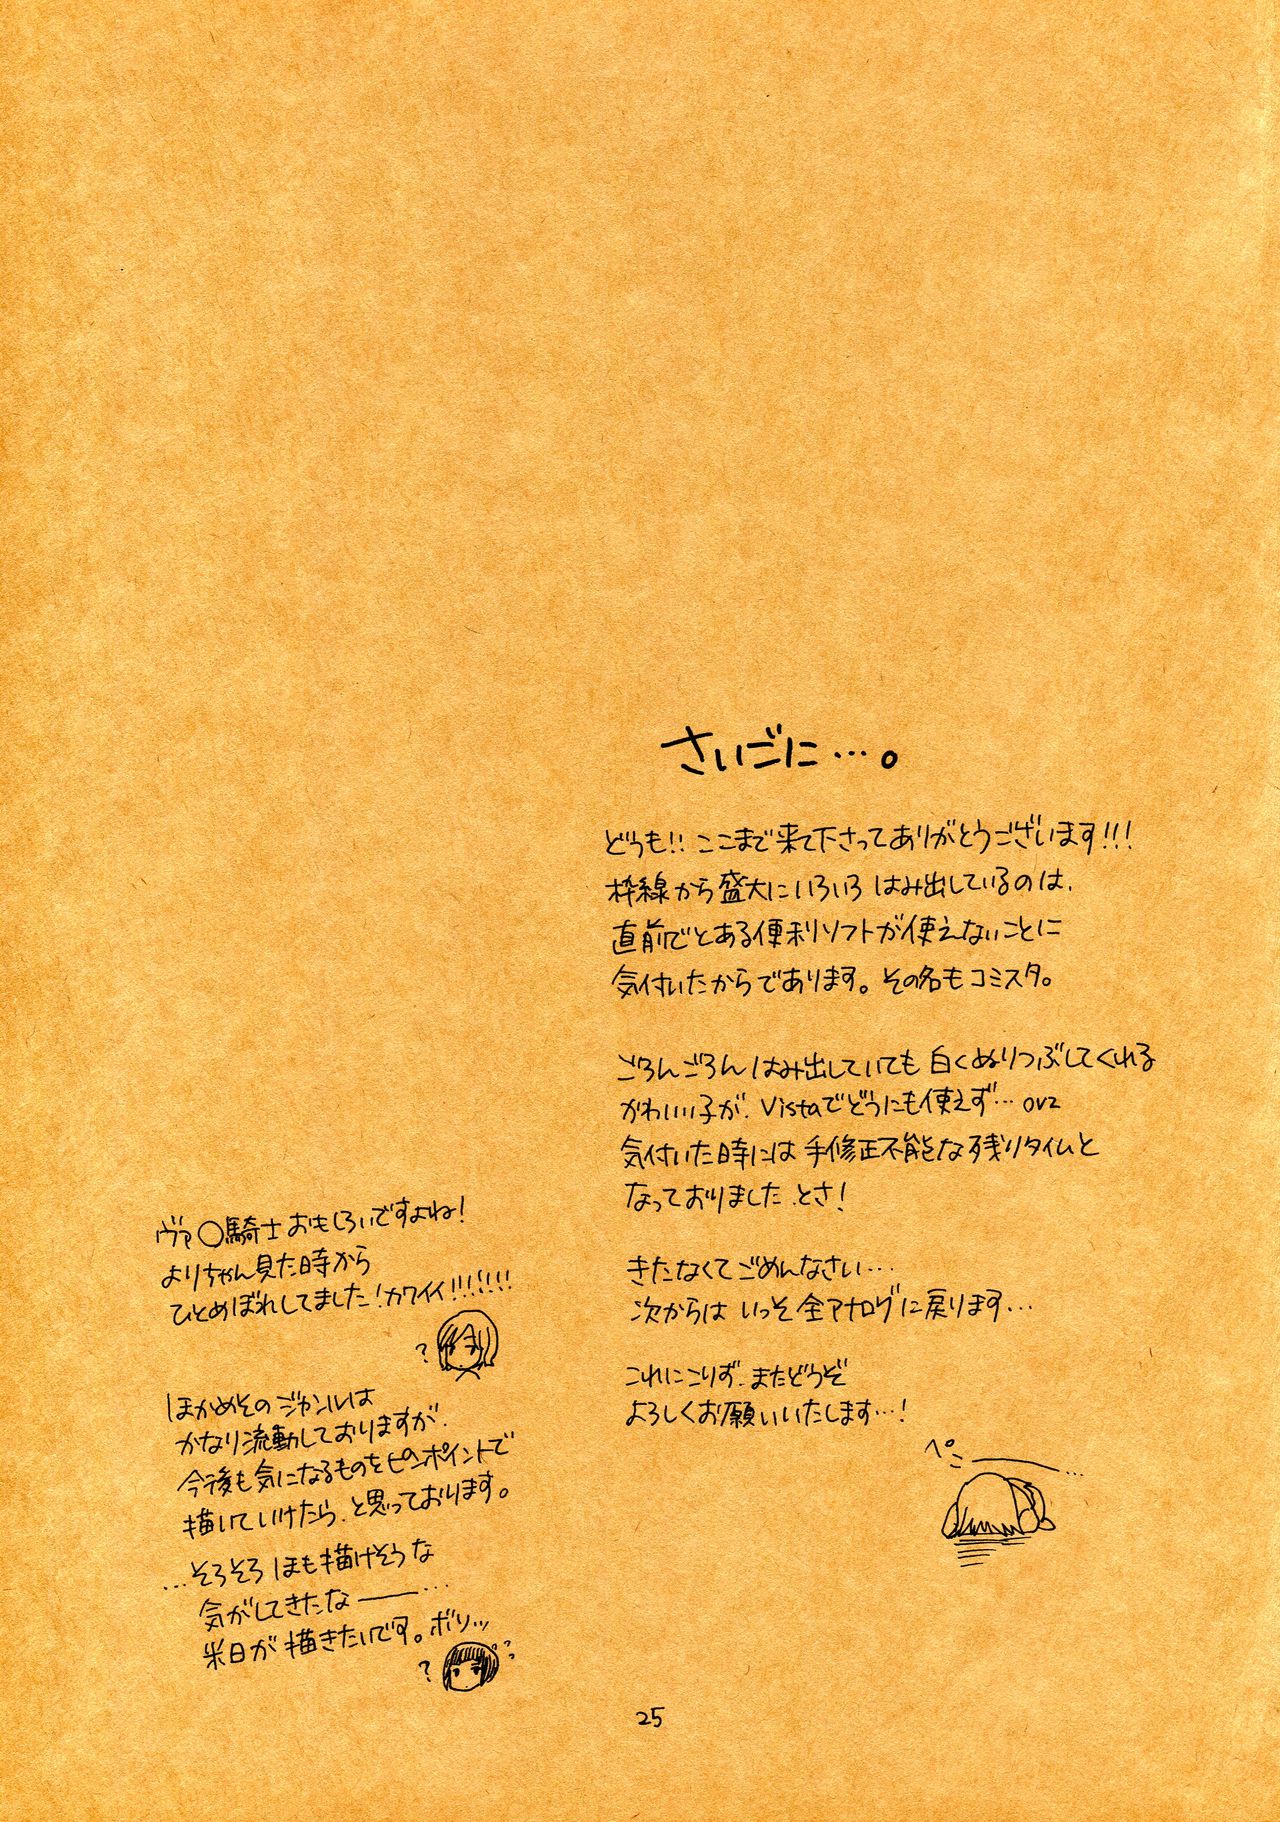 さいごに…。
どうも!! ここまで来て下さってありがとうございます!!!
枠線から盛大にいろいろ はみ出しているのは、
直前でとある便利ソフトが使えないことに
気付いたからであります。その名もコミスタ。
ごろんごろん はみ出していても 白くぬりつぶしてくれる
かわいい子が、Vistaでどうにも使えず… orz
気付いた時には 手修正不能な残りタイムと
なっておりました、とさ!
きたなくて ごめんなさい…
次からは いっそ全アナログに戻ります…
これにこりず、またどうぞ
よろしくお願いいたします…!
ペこー…
ヴァ○騎士 おもしろいですよね!
よりちゃん見た時から
ひとめぼれしてました!カワイイ!!!!!!
?
ほかめその ジャンルは
かなり流動しておりますが、
今後も気になるものをピンポイントで
描いていけたら、と思っております。
…そろそろ ほも描けそうな
気がしてきたなー…
米日が描きたいです。ボソッ
?
??
25